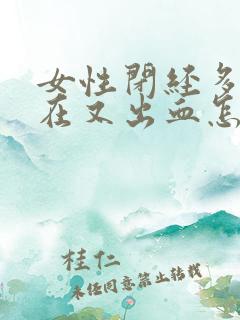 女性閉経多
在又出血怎
桂仁
未经同意禁止转载